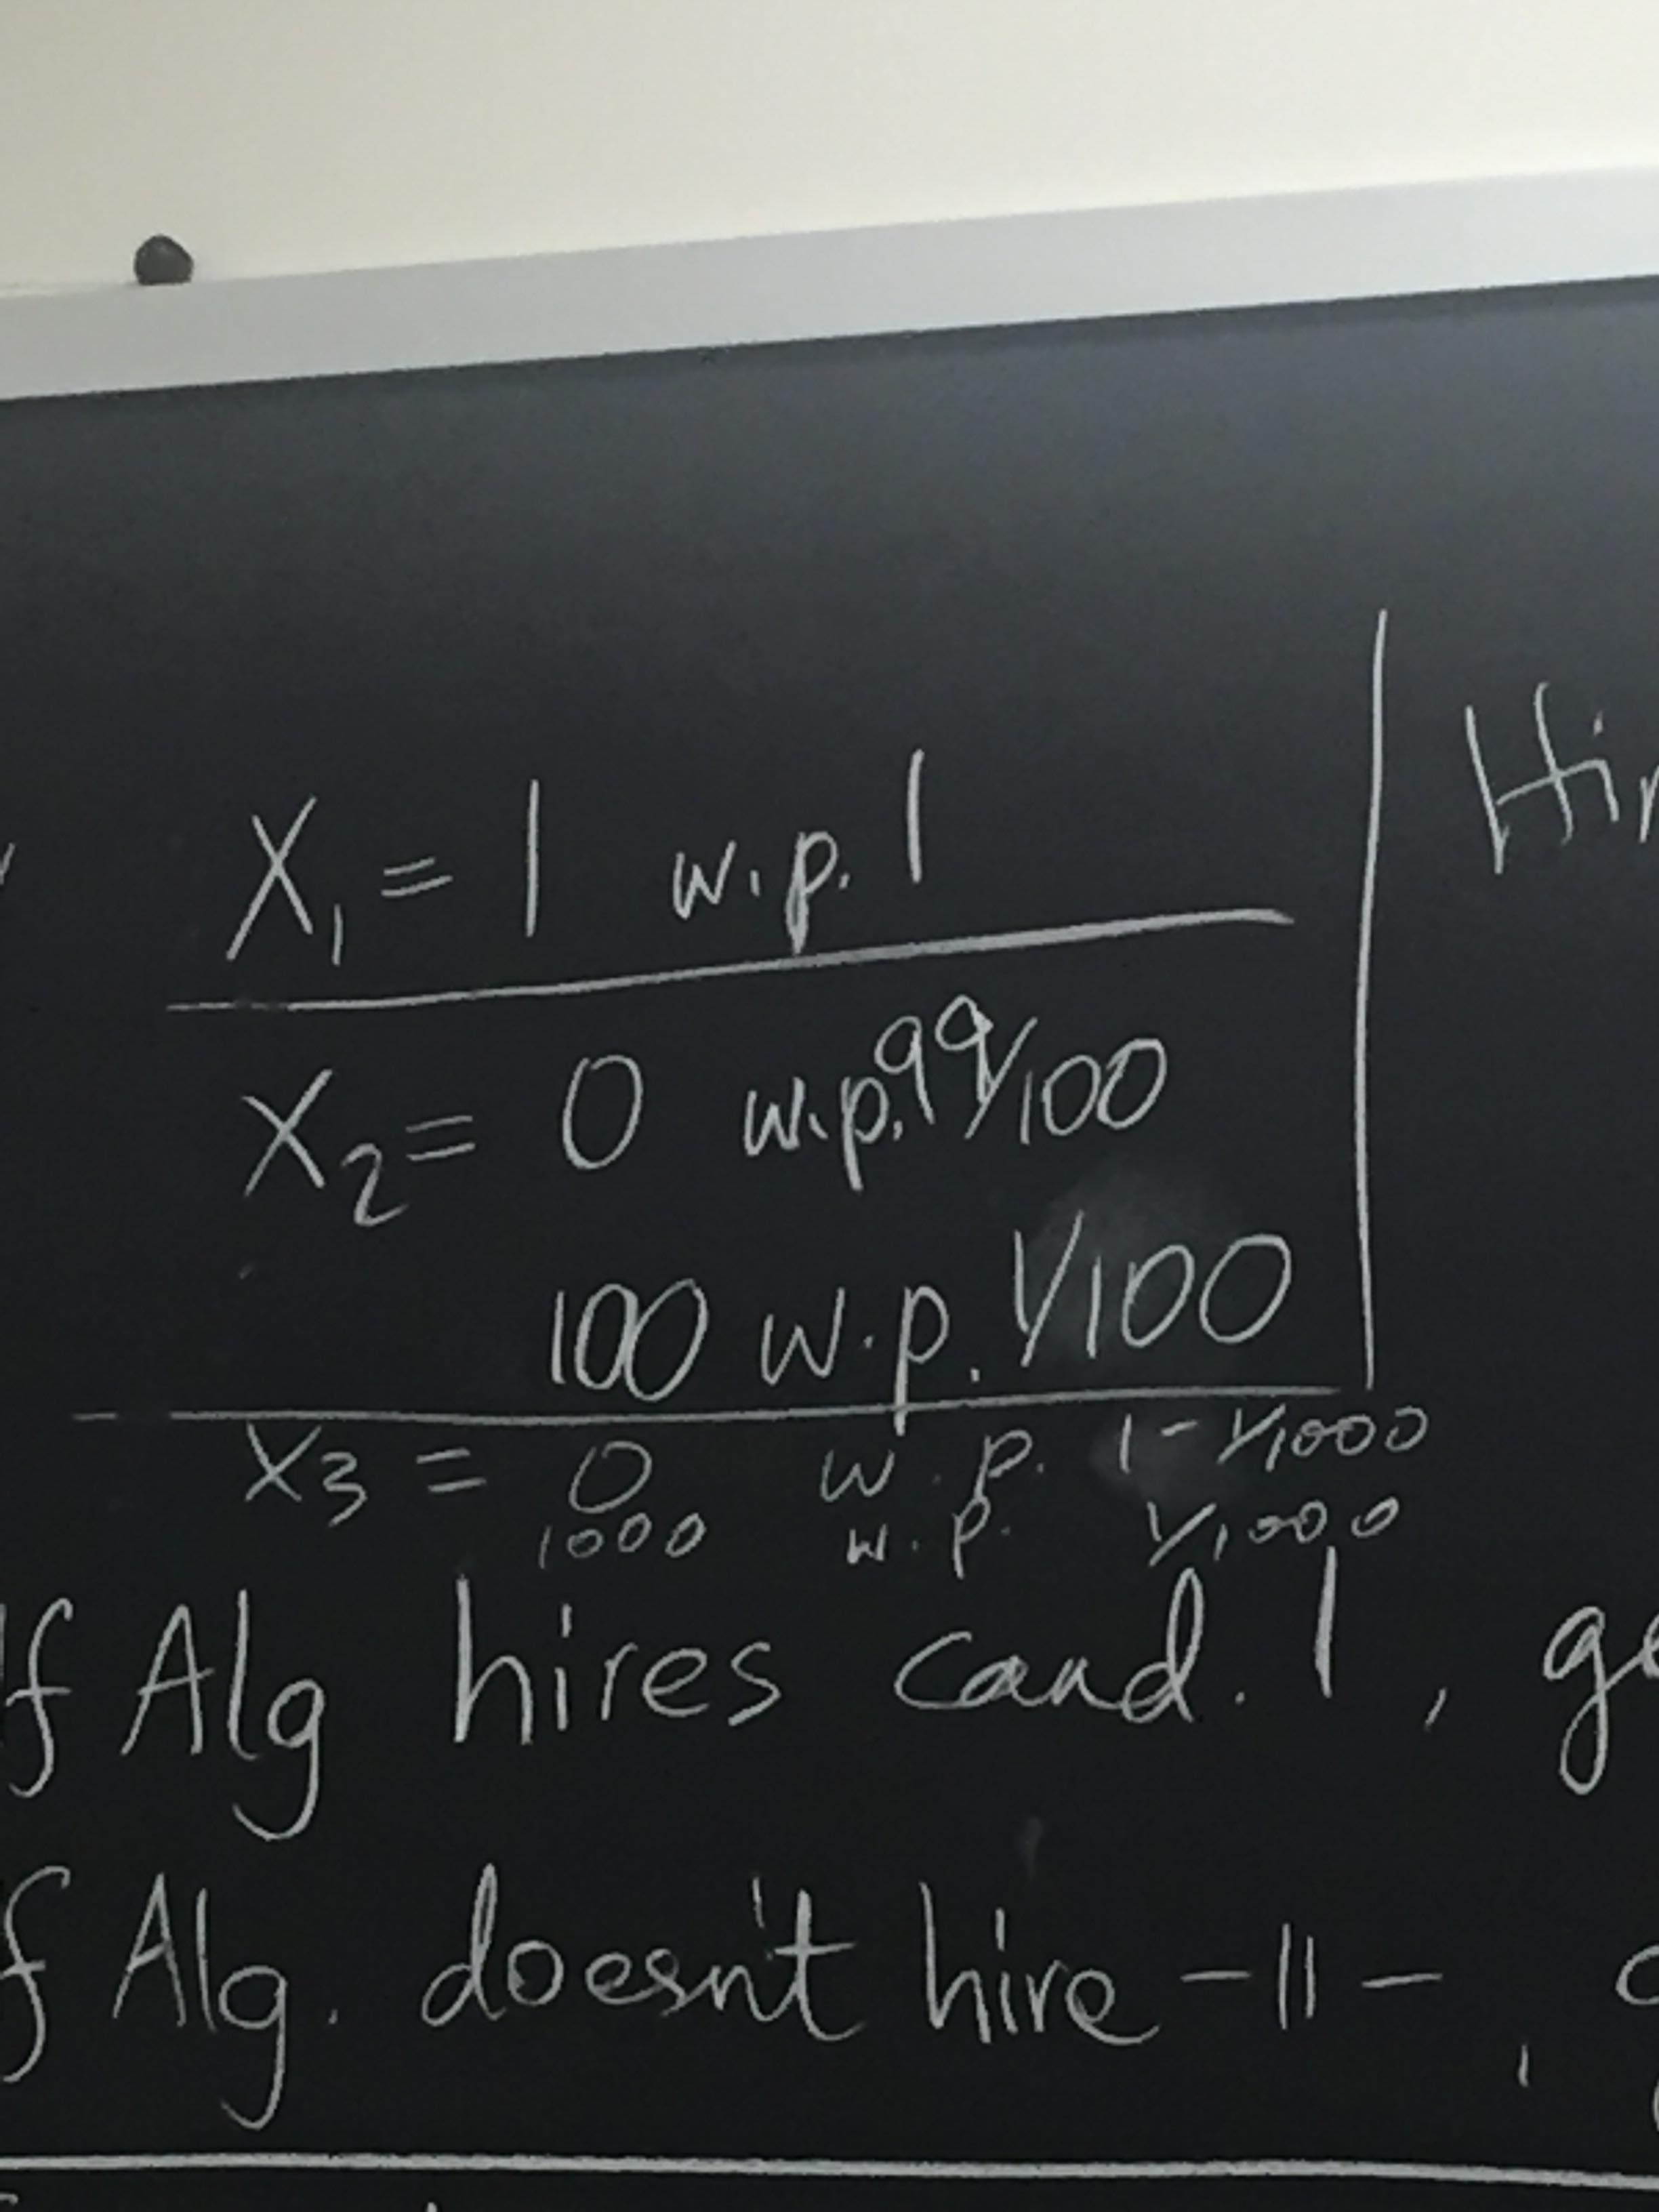 X₁ = 1 w.p. 1
X₂ = 0 w.p. 99/100
100 w.p. 1/100
X3 = 0 w.p. 1 - 1/1000
1000 w.p. 1/1000
If Alg hires cand. 1,
If Alg. doesn't hire -||-,